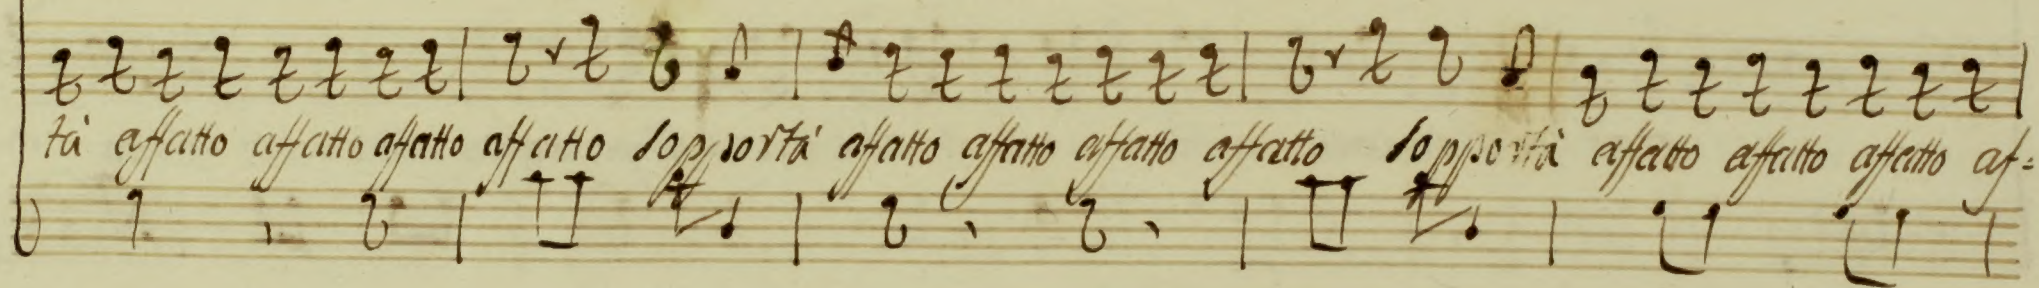 tà affatto affatto affatto affatto sopportà affatto affatto affatto affatto sopportà affatto affatto affatto af=